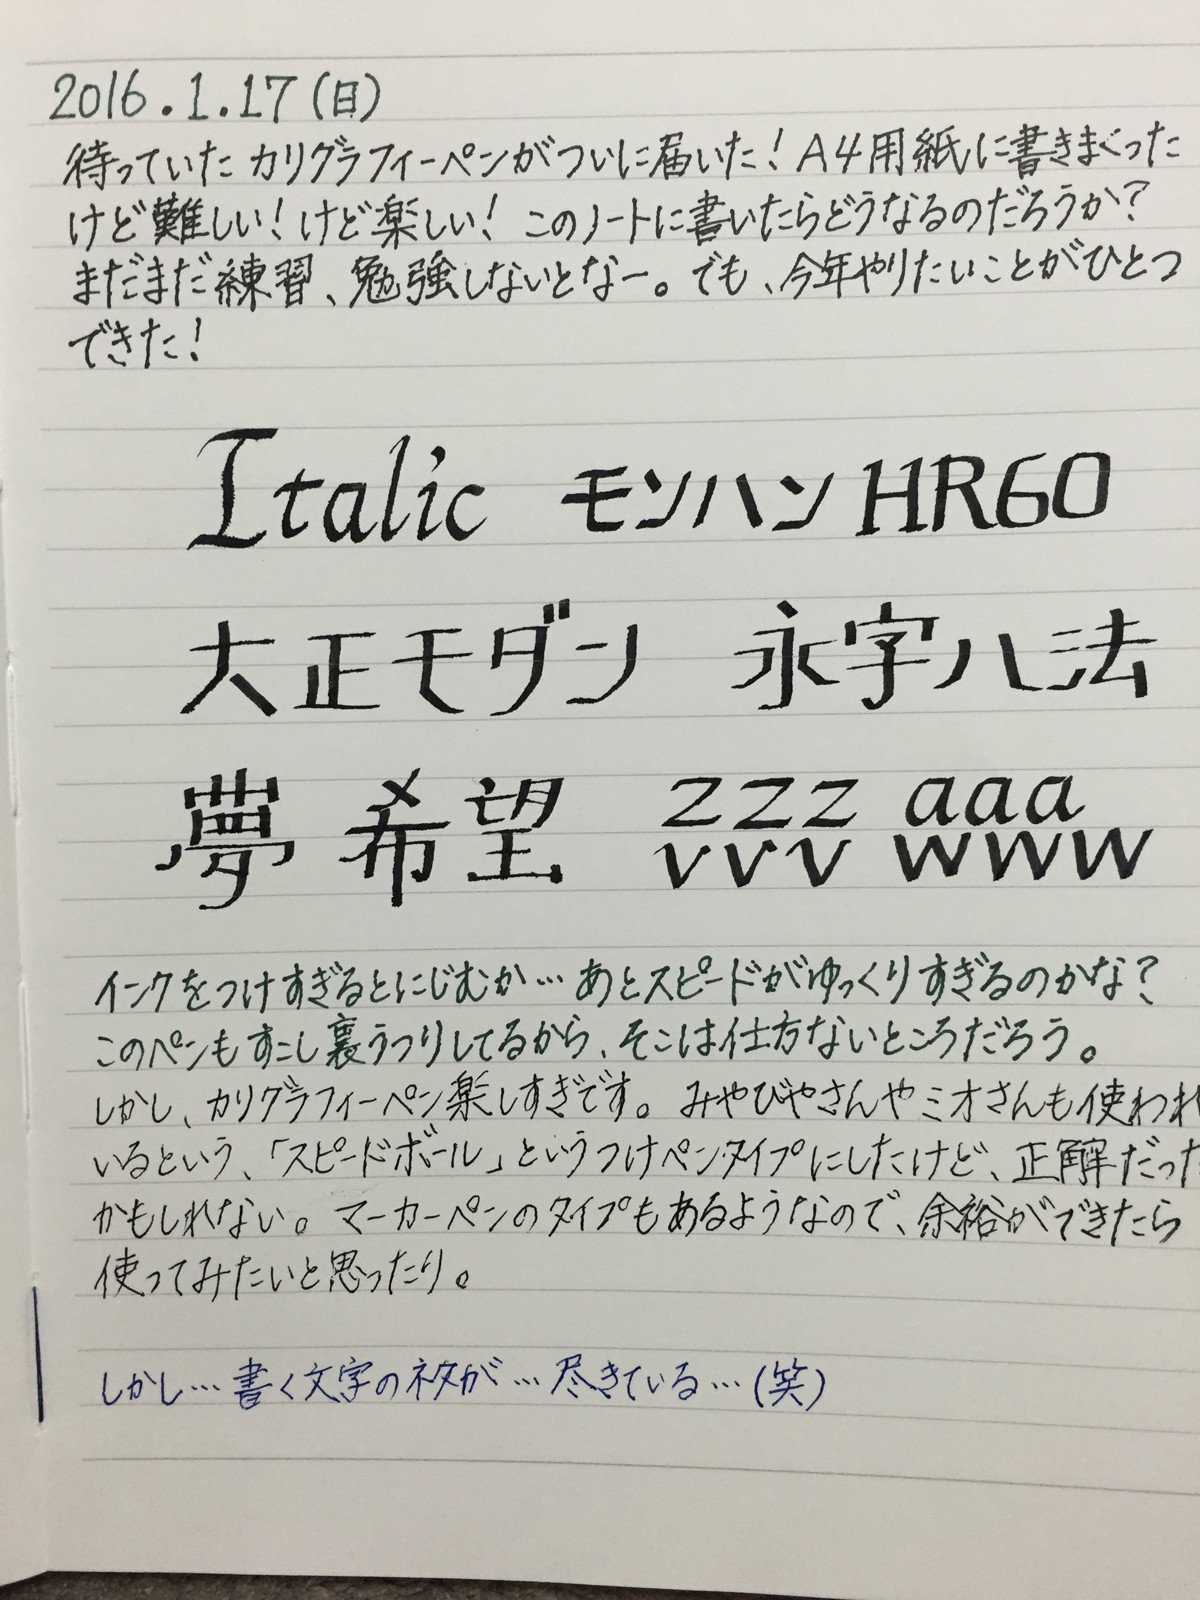 2016.1.17(日)
待っていたカリグラフィーペンがついに届いた！A4用紙に書きまくった
けど難しい！けど楽しい！このノートに書いたらどうなるのだろうか？
まだまだ練習、勉強しないとなー。でも、今年やりたいことがひとつ
できた！
Italic モンハンHR60
大正モダン 永字八法
夢 希望 zzz aaa
vvv www
インクをつけすぎるとにじむか…あとスピードがゆっくりすぎるのかな？
このペンもすこし裏うつりしてるから、そこは仕方ないところだろう。
しかし、カリグラフィーペン楽しすぎです。みやびやさんやミオさんも使われ
いるという、「スピードボール」というつけペンタイプにしたけど、正解だった
かもしれない。マーカーペンのタイプもあるようなので、余裕ができたら
使ってみたいと思ったり。
しかし…書く文字のネタが…尽きている…(笑)